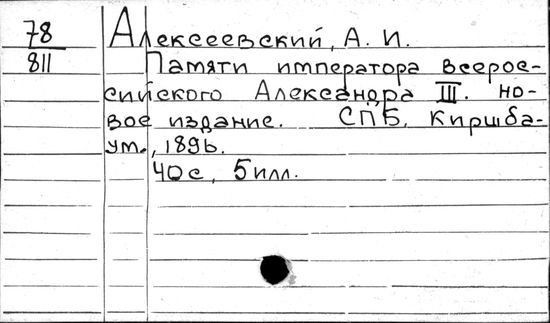 78
811
Алексеевский, А. И.
Памяти императора всерос-
сийского Александра III. но-
вое издание. СПБ, Киршба-
ум., 1896.
40 с, 5 илл.